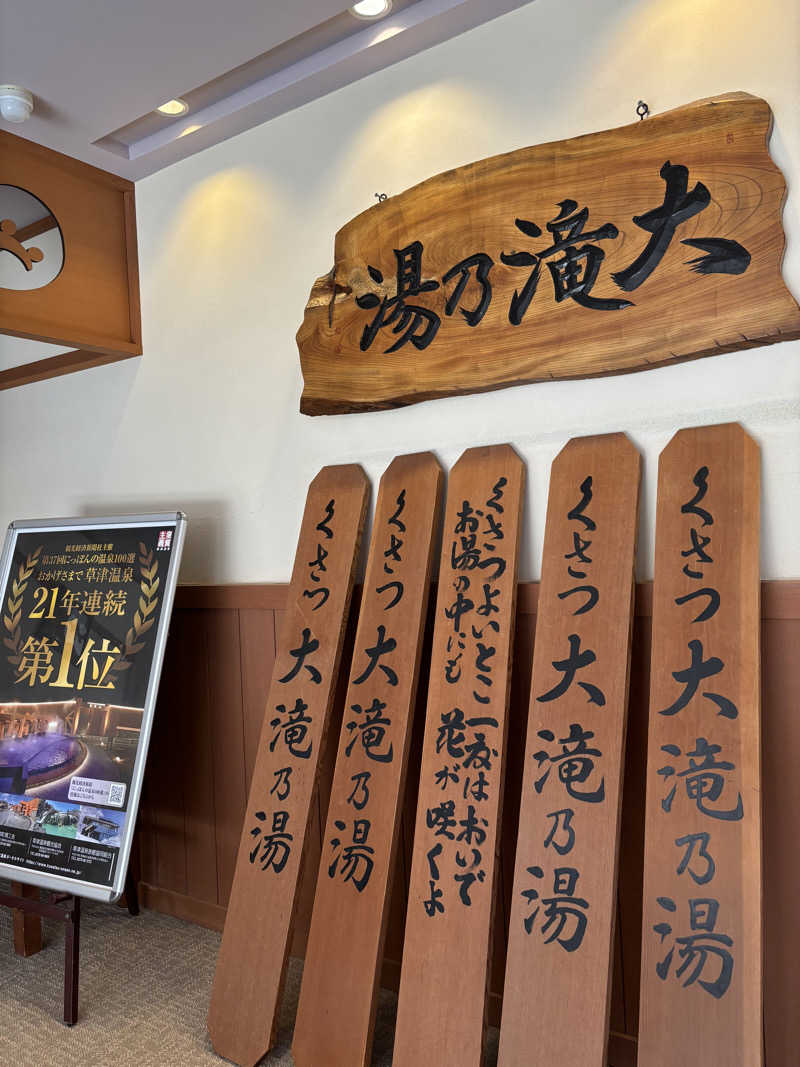 大滝乃湯
くさつ 大滝乃湯
くさつ 大滝乃湯
くさつよいとこ 一度はおいで
お湯の中にも 花が咲くよ
くさつ 大滝乃湯
くさつ 大滝乃湯
観光経済新聞社主催
第37回にっぽんの温泉100選
おかげさまで 草津温泉
21年連続
第1位